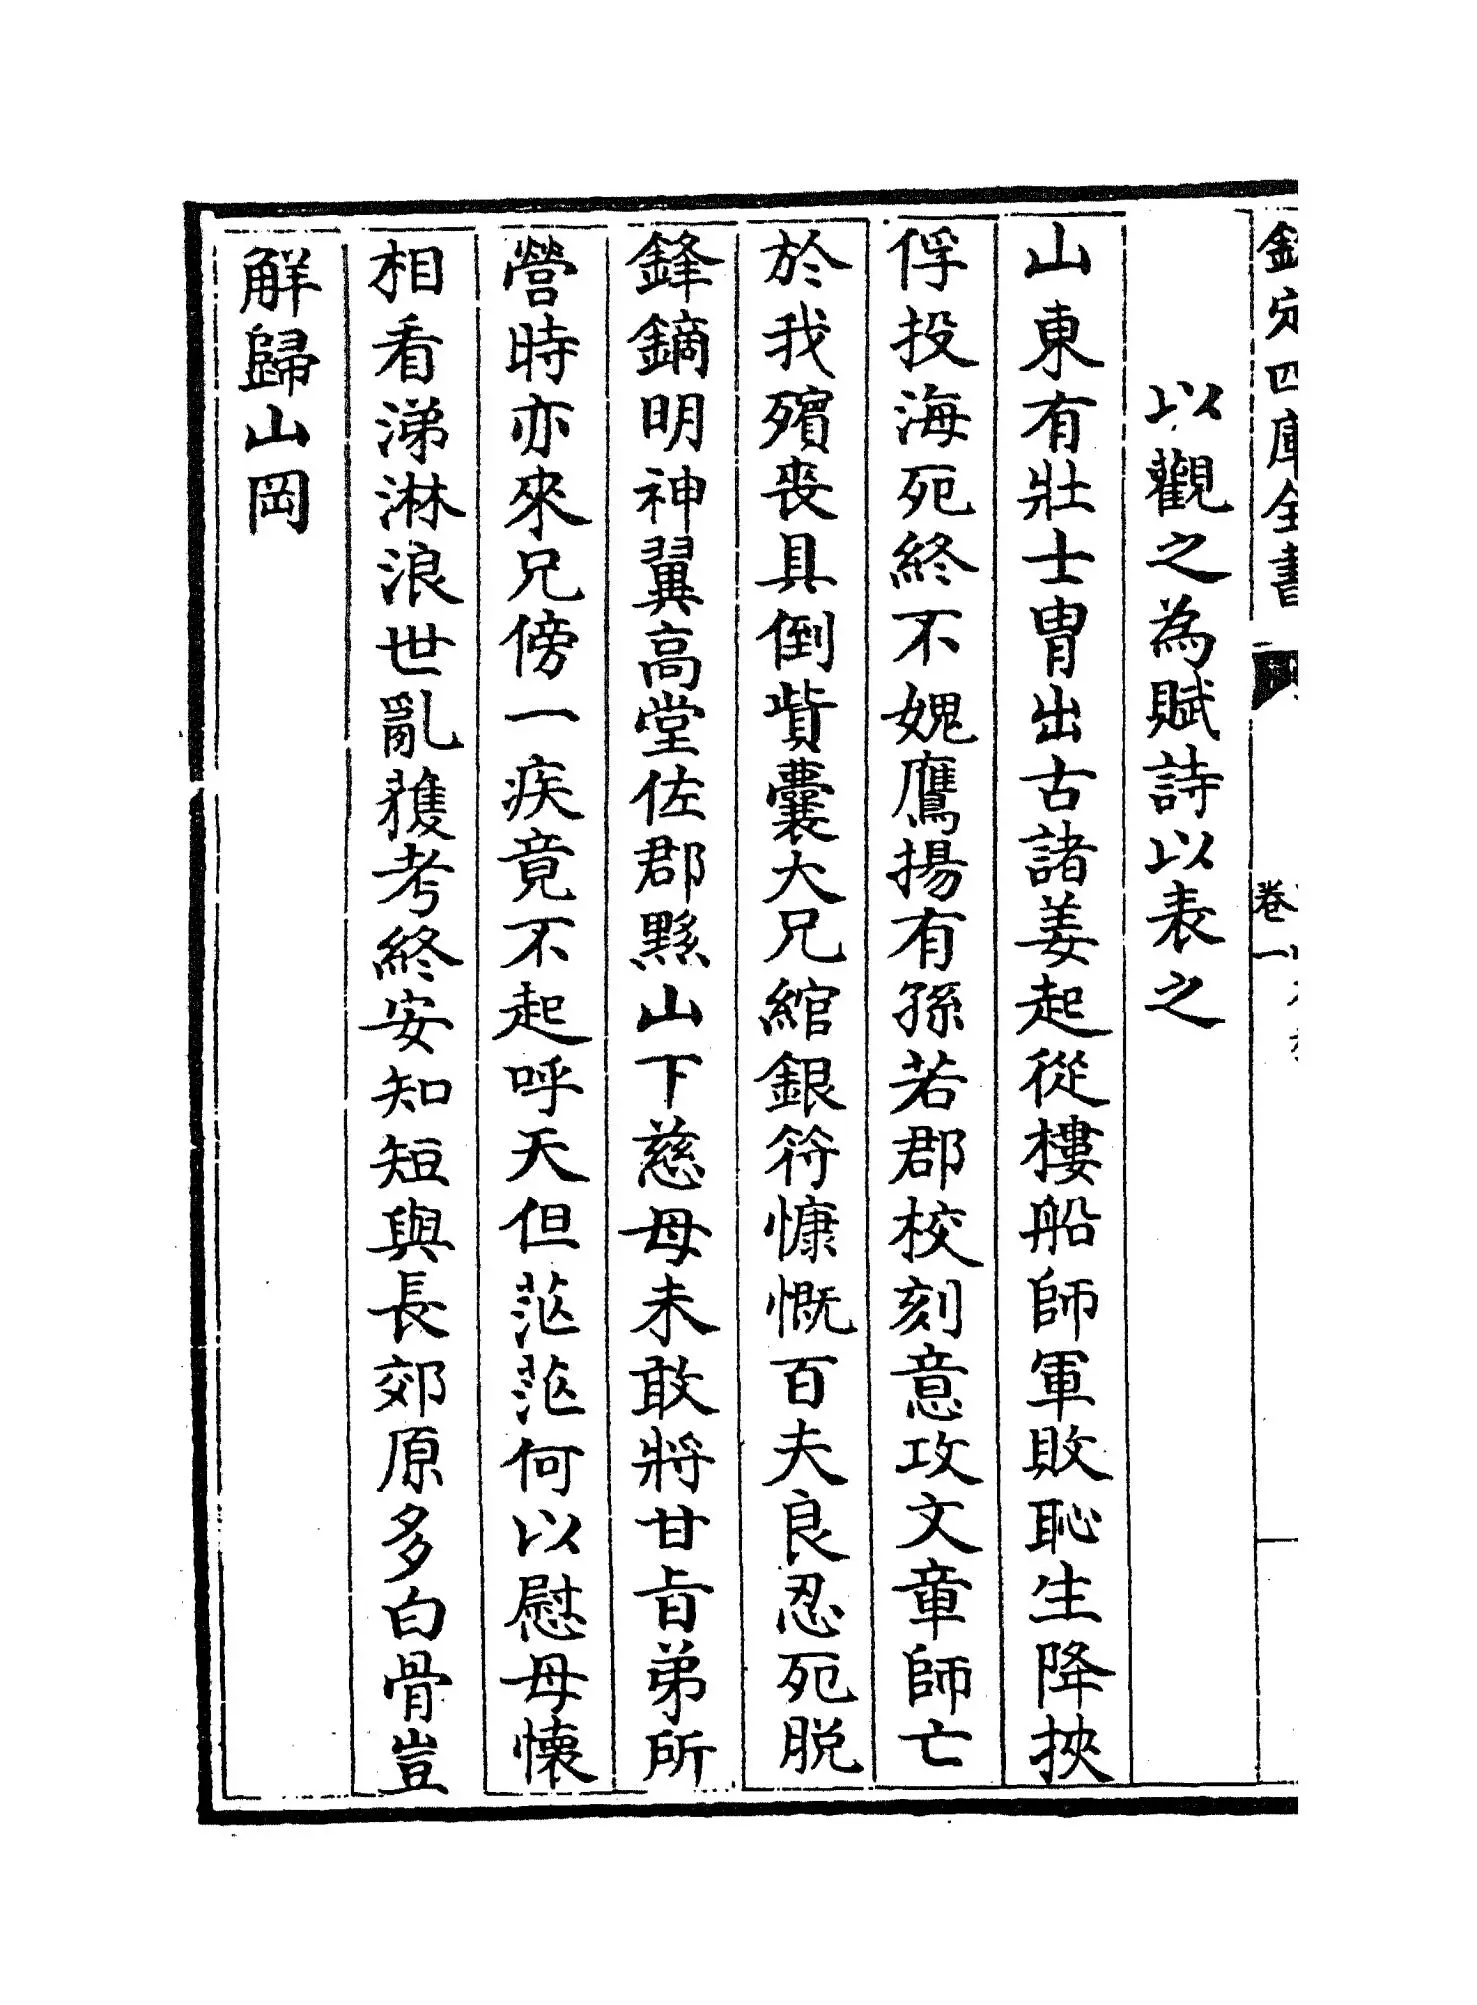 欽定四庫全書
卷一
以觀之為賦詩以表之
山東有壯士冑出古諸姜起從樓船師軍敗恥生降挾
俘投海死終不媿鷹揚有孫若郡校刻意攻文章師亡
於我殯喪具倒貲囊大兄綰銀符慷慨百夫良忍死脫
鋒鏑明神翼高堂佐郡黟山下慈母未敢將甘旨弟所
營時亦來兄傍一疾竟不起呼天但茫茫何以慰母懷
相看涕淋浪世亂獲考終安知短與長郊原多白骨豈
解歸山岡